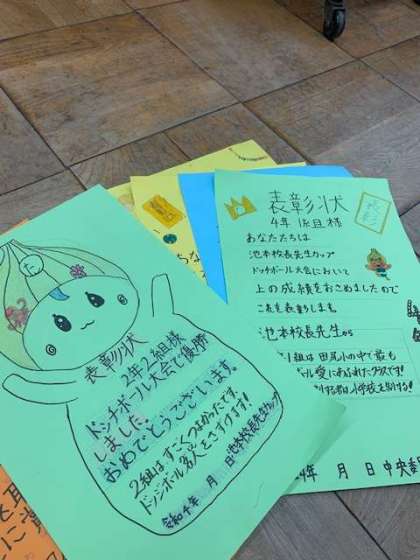 た
表彰状
2年2組様
ドッチボール大会で優勝
しました
おめでとうございます。
2組はすごくつよかったです。
ドッジボール名人とさずけます!
令和4年 月 日 池本校長先生カップ
表彰状
表彰
4年1組様
あなたたちは
池本校長先生カップ
ドッチボール大会において
上の成績をおさめましたので
これを表彰しまも
池本校長先生から
1組は田尻小の中で最も
ール愛にあふれたクラスです!
する者は小学校を制する!
4年 月 日 中央委